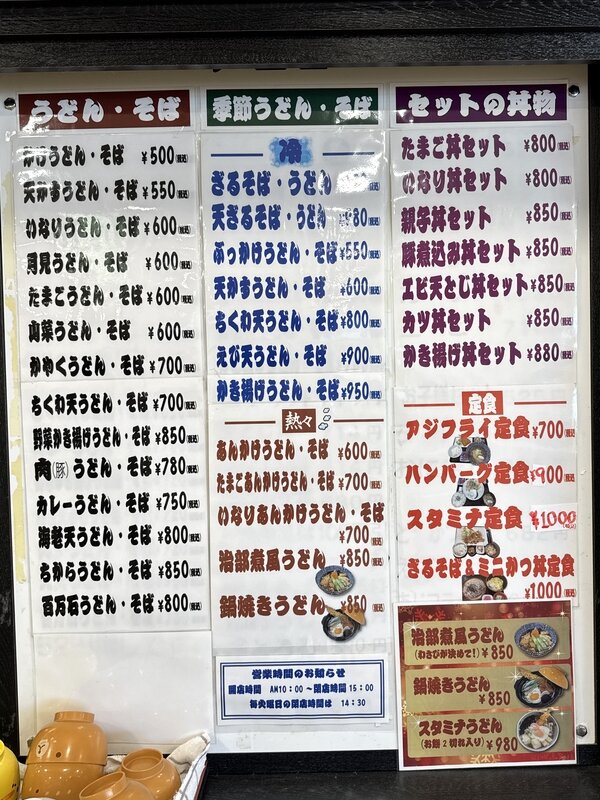 うどん・そば
かけうどん・そば ¥500(税込)
天かすうどん・そば ¥550(税込)
いなりうどん・そば ¥600(税込)
月見うどん・そば ¥600(税込)
たまごうどん・そば ¥600(税込)
山菜うどん・そば ¥600(税込)
かやくうどん・そば ¥700(税込)
ちくわ天うどん・そば ¥700(税込)
野菜かき揚げうどん・そば ¥850(税込)
肉(豚)うどん・そば ¥780(税込)
カレーうどん・そば ¥750(税込)
海老天うどん・そば ¥800(税込)
ちからうどん・そば ¥850(税込)
百万石うどん・そば ¥800(税込)
季節うどん・そば
冷
ざるそば・うどん
天ざるそば・うどん
ぶっかけうどん・そば ¥550(税込)
天かすうどん・そば ¥600(税込)
ちくわ天うどん・そば ¥800(税込)
えび天うどん・そば ¥900(税込)
かき揚げうどん・そば ¥950(税込)
熱々
あんかけうどん・そば ¥600(税込)
たまごあんかけうどん・そば ¥700(税込)
いなりあんかけうどん・そば
¥700(税込)
治部煮風うどん ¥850(税込)
鍋焼きうどん ¥850(税込)
営業時間のお知らせ
開店時間 AM10:00～閉店時間 15:00
毎火曜日の閉店時間は 14:30
セットの丼物
たまご丼セット ¥800(税込)
いなり丼セット ¥800(税込)
親子丼セット ¥850(税込)
豚煮込み丼セット ¥850(税込)
エビ天とじ丼セット ¥850(税込)
カツ丼セット ¥850(税込)
かき揚げ丼セット ¥880(税込)
定食
アジフライ定食 ¥700(税込)
ハンバーグ定食 ¥900(税込)
スタミナ定食 ¥1000(税込)
ざるそば&ミニかつ丼定食
¥1000(税込)
治部煮風うどん
(わさびが決めて!) ¥850
鍋焼きうどん
¥850
スタミナうどん
(お餅2切れ入り) ¥980